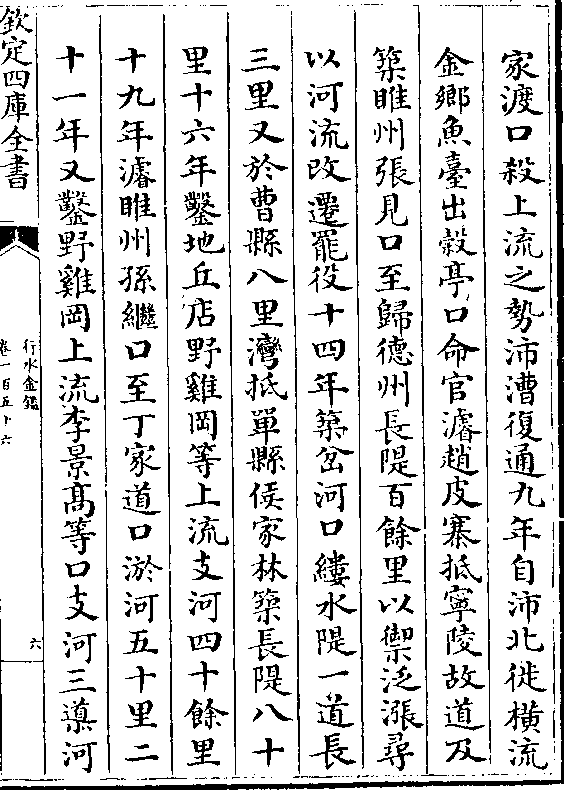 家渡口殺上流之勢沛漕復通九年自沛北徙橫流
金鄉魚臺出穀亭口命官濬趙皮寨抵寧陵故道及
築睢州張見口至歸德州長隄百餘里以禦泛漲尋
以河流改遷罷役十四年築岔河口縷水隄一道長
三里又於曹縣八里灣抵單縣侯家林築長隄八十
里十六年鑿地丘店野雞岡等上流支河四十餘里
十九年濬睢州孫繼口至丁家道口淤河五十里二
十一年又鑿野雞岡上流李景髙等口支河三導河
欽定四庫全書
行水金鑑
卷一百五十六
六